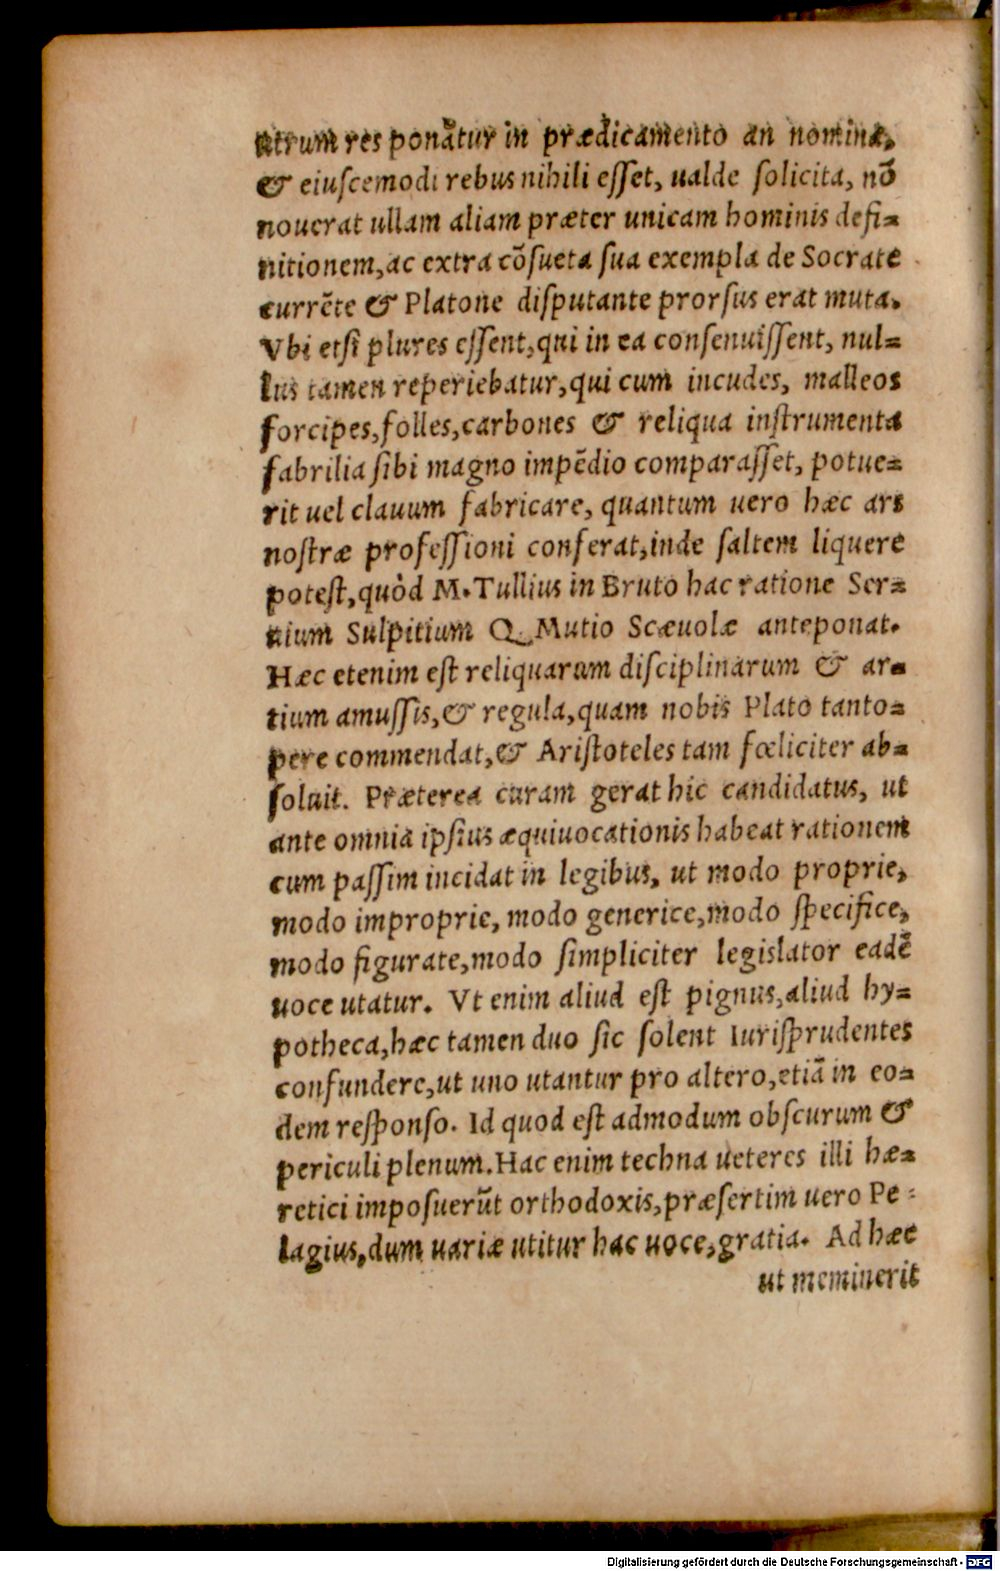 utrum res ponãtur in prædicamento an nomina,
& eiuſcemodi rebus nihili eſſet, ualde ſolicita, nõ
nouerat ullam aliam præter unicam hominis defi-
nitionem, ac extra cõſueta ſua exempla de Socrate
currẽte & Platone diſputante prorſus erat muta.
Vbi etſi plures eſſent, qui in ea conſenuiſſent, nul-
lus tamen reperiebatur, qui cum incudes, malleos
forcipes, folles, carbones & reliqua inſtrumenta
fabrilia ſibi magno impẽdio comparaſſet, potue-
rit uel clauum fabricare, quantum uero hæc ars
noſtræ profeſſioni conferat, inde ſaltem liquere
poteſt, quòd M. Tullius in Bruto hac ratione Ser-
uium Sulpitium Q. Mutio Scæuolæ anteponat.
Hæc etenim eſt reliquarum diſciplinarum & ar-
tium amuſſis, & regula, quam nobis Plato tanto-
pere commendat, & Ariſtoteles tam fœliciter ab-
ſoluit. Præterea curam gerat hic candidatus, ut
ante omnia ipſius æquiuocationis habeat rationem
cum paſſim incidat in legibus, ut modo proprie,
modo improprie, modo generice, modo ſpecifice,
modo figurate, modo ſimpliciter legislator eadẽ
uoce utatur. Vt enim aliud eſt pignus, aliud hy-
potheca, hæc tamen duo ſic ſolent Iuriſprudentes
confundere, ut uno utantur pro altero, etiã in eo-
dem reſponſo. Id quod eſt admodum obſcurum &
periculi plenum. Hac enim techna ueteres illi hæ-
retici impoſuerũt orthodoxis, præſertim uero Pe-
lagius, dum uariæ utitur hac uoce, gratia. Ad hæc
ut meminerit
Digitalisierung gefördert durch die Deutsche Forschungsgemeinschaft - DFG